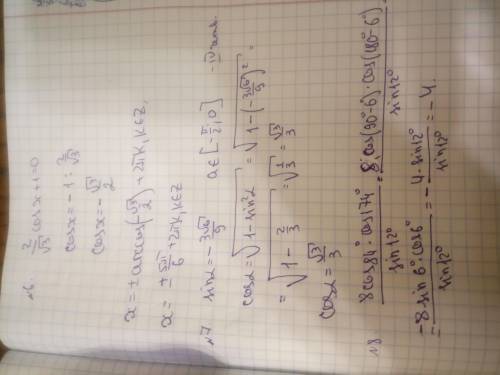 №6. 2/√3 cosx+1=0
cosx=-1 : 2/√3
cosx=-√3/2
x=±arccos(-√3/2)+2πk, k∈Z,
x=±5π/6+2πk, k∈Z
№7 sinα=-3√6/9 α∈[-π/2; 0] -IV
cosα=√(1-sin²α)=√(1-(-3√6/9)²)=
=√(1-2/3)=√(1/3)=√3/3
cosα=√3/3
№8 8cos84°·cos174°/sin12°=8·cos(90°-6)·cos(180°-6°)/sin12°
=-8sin6°·cos6°/sin12°=-4·sin12°/sin12°=-4.